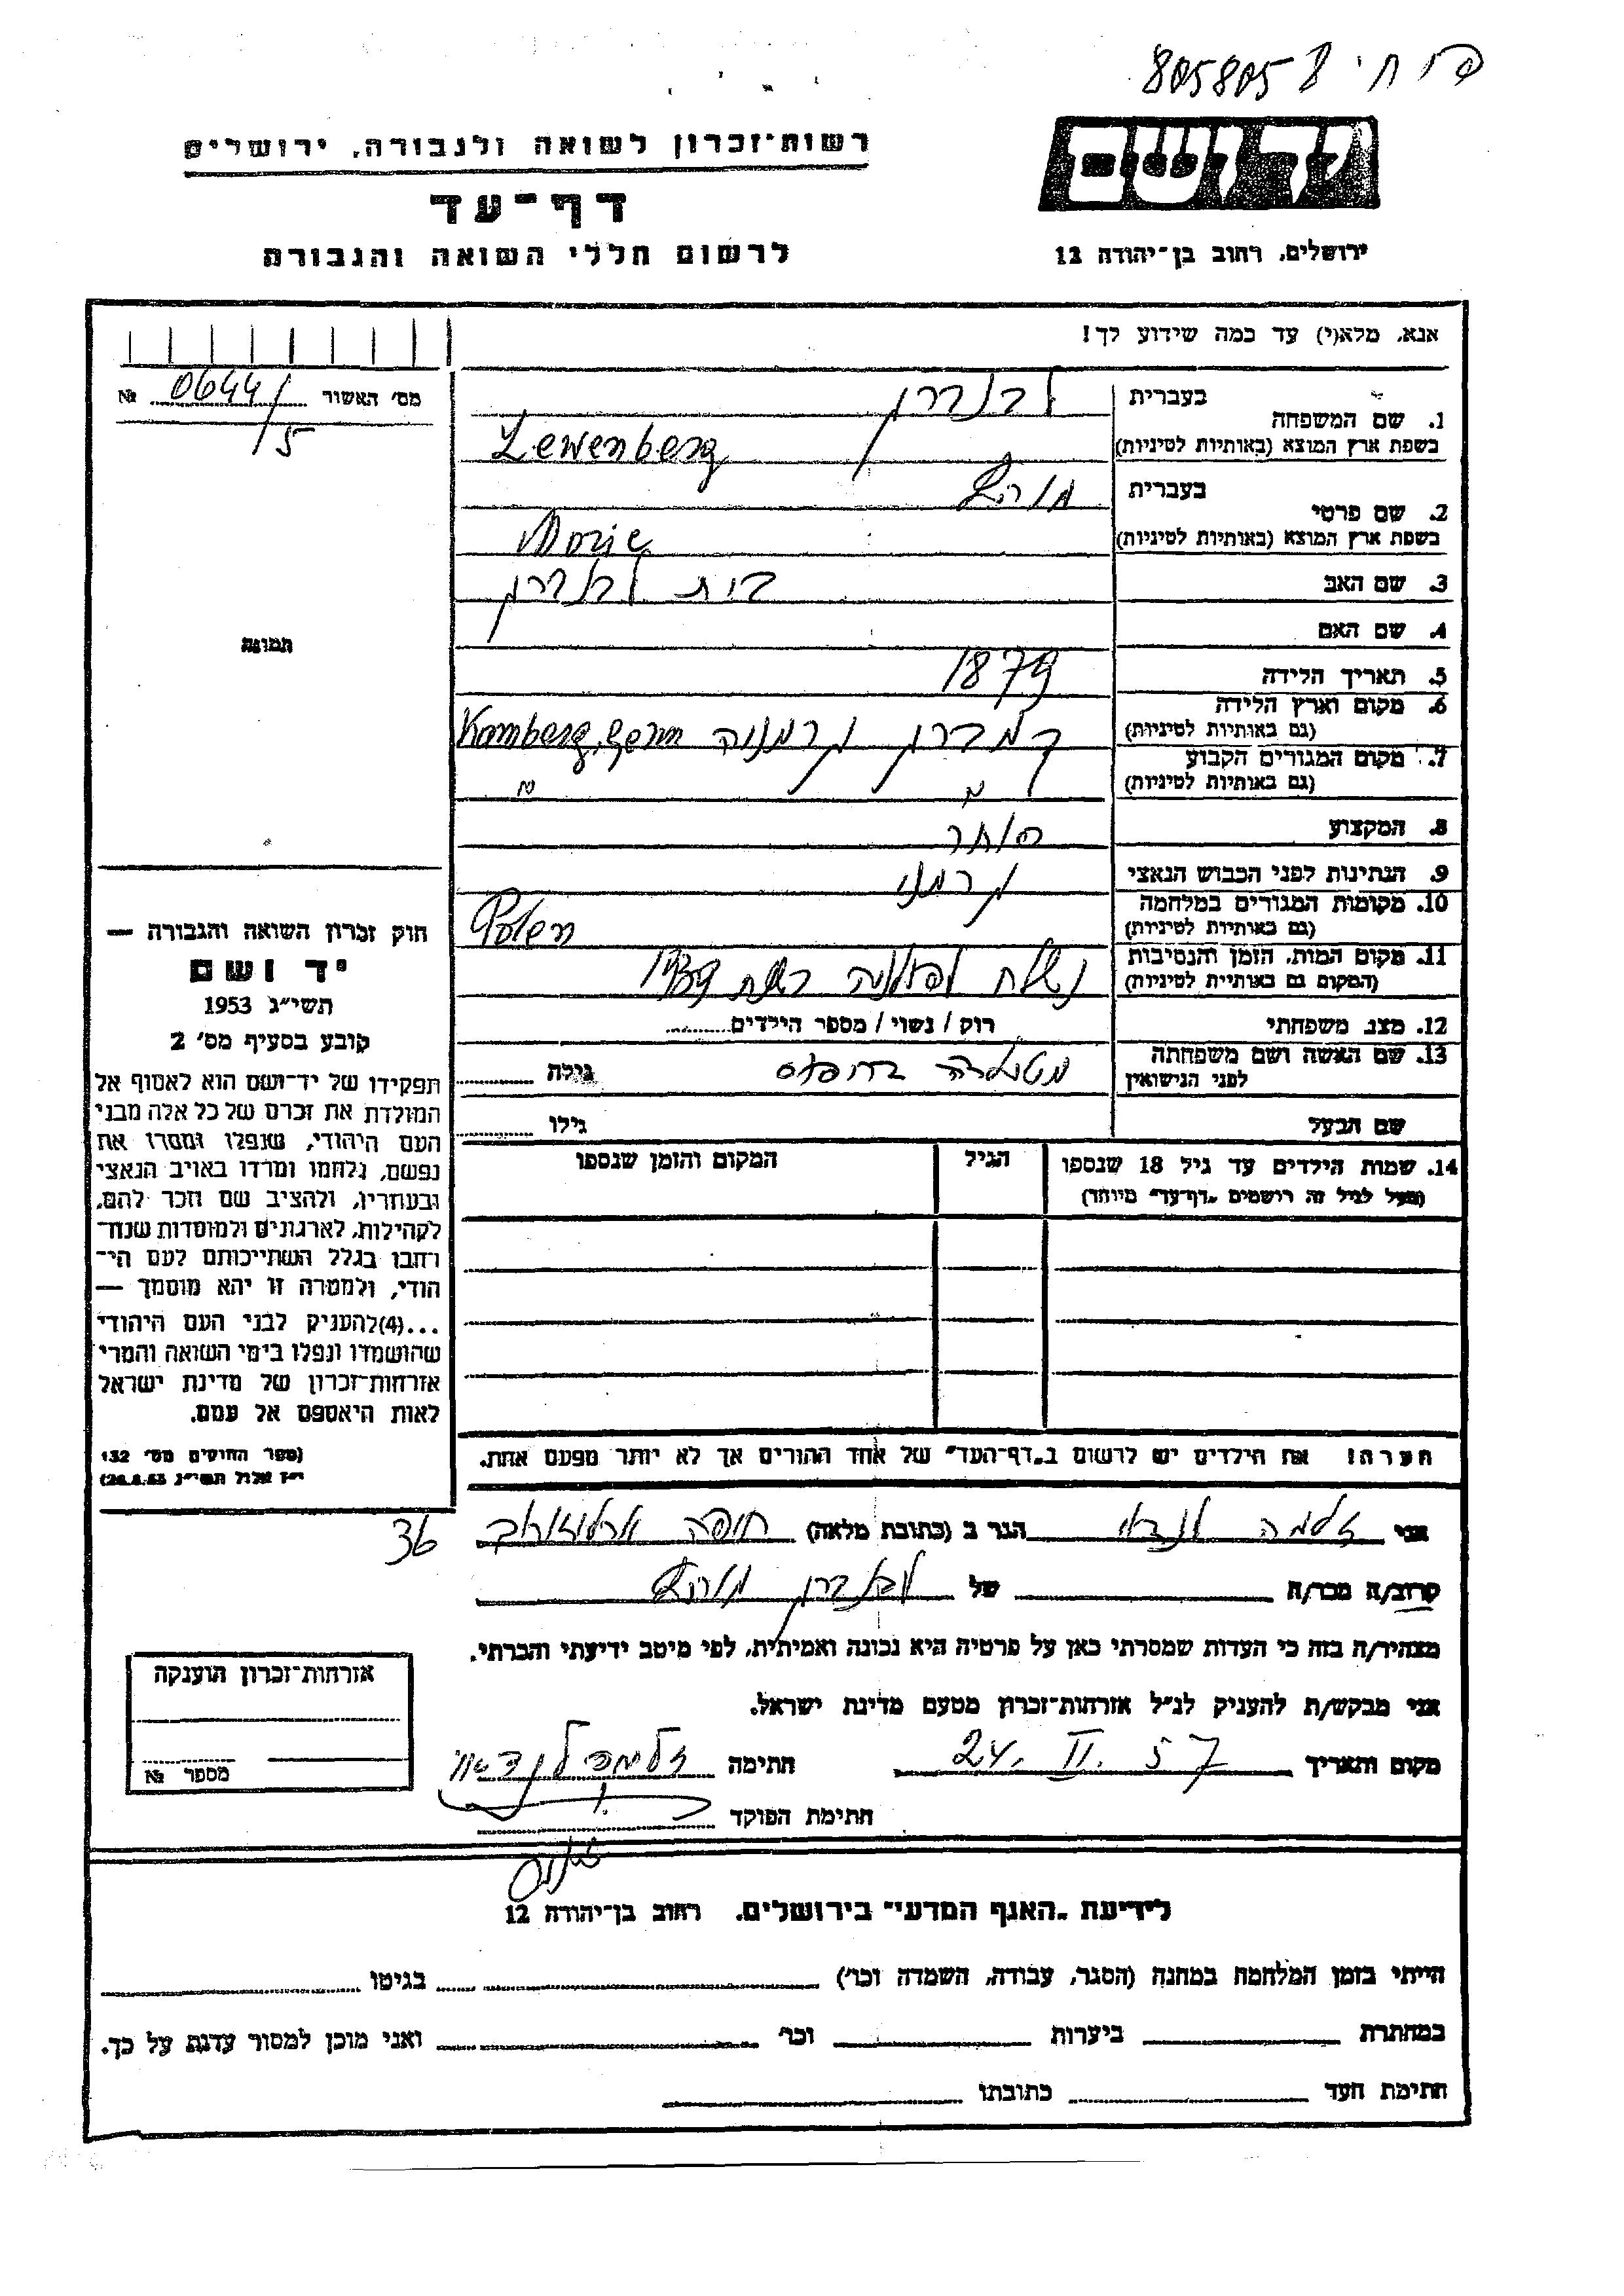 8058058
רשות־זכרון לשואה ולגבורה, ירושלים
דף־עד
לרשום חללי השואה והגבורה
ידושם
ירושלים, רחוב בן־יהודה 12
אנא, מלא(י) עד כמה שידוע לך!
מס׳ האשור 0644/5 №
תמונה
1. שם המשפחה
בעברית
בשפת ארץ המוצא (באותיות לטיניות) Lewenberg
2. שם פרטי
בעברית
בשפת ארץ המוצא (באותיות לטיניות)
3. שם האב
4. שם האם
5. תאריך הלידה 1879
6. מקום וארץ הלידה
(גם באותיות לטיניות) קמברג גרמניה Kamberg, Germ
7. מקום המגורים הקבוע
(גם באותיות לטיניות) " "
8. המקצוע סוחר
9. הנתינות לפני הכבוש הנאצי גרמני
10. מקומות המגורים במלחמה
(גם באותיות לטיניות) Polen
11. מקום המות, הזמן והנסיבות
(המקום גם באותיות לטיניות) נשלח לפולניה בשנת 1939
12. מצב משפחתי רוק / נשוי / מספר הילדים
13. שם האשה ושם משפחתה
לפני הנישואין
גילה
שם הבעל גילו
14. שמות הילדים עד גיל 18 שנספו
(מעל לגיל זה רושמים „דף־עד" מיוחד)
הגיל
המקום והזמן שנספו
הערה! את הילדים יש לרשום ב„דף־העד" של אחד ההורים אך לא יותר מפעם אחת.
חוק זכרון השואה והגבורה —
יד ושם
תשי״ג 1953
קובע בסעיף מס׳ 2
תפקידו של יד־ושם הוא לאסוף אל
המולדת את זכרם של כל אלה מבני
העם היהודי, שנפלו ומסרו את
נפשם, נלחמו ומרדו באויב הנאצי
ובעוזריו, ולהציב שם וזכר להם,
לקהילות, לארגונים ולמוסדות שנח־
רבו בגלל השתייכותם לעם הי־
הודי, ולמטרה זו יהא מוסמך —
...(4)להעניק לבני העם היהודי
שהושמדו ונפלו בימי השואה והמרי
אזרחות־זכרון של מדינת ישראל
לאות היאספם אל עמם.
(ספר החוקים מס׳ 132
י״ז אלול תשי״ג 28.8.53)
אני זלמה לנדאו הגר ב (כתובת מלאה) חיפה ארלוזורוב 36
קרוב/ה מכר/ה של
מצהיר/ה בזה כי העדות שמסרתי כאן על פרטיה היא נכונה ואמיתית, לפי מיטב ידיעתי והכרתי.
אני מבקש/ת להעניק לנ״ל אזרחות־זכרון מטעם מדינת ישראל.
מקום ותאריך 24. II. 57 חתימה זלמה לנדאו
חתימת הפוקד
אזרחות־זכרון הוענקה
מספר №
לידיעת „האגף המדעי" בירושלים, רחוב בן־יהודה 12
הייתי בזמן המלחמה במחנה (הסגר, עבודה, השמדה וכו׳) בגיטו
במחתרת ביערות וכו׳ ואני מוכן למסור עדות על כך.
חתימת העד כתובתו